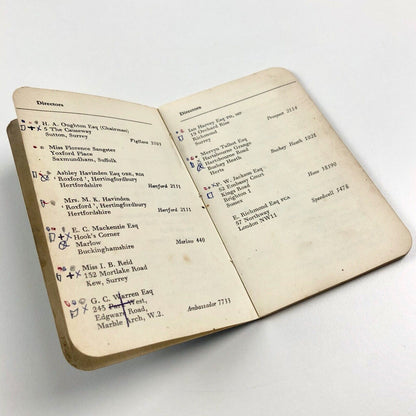 Directors
H. A. Oughton Esq (Chairman)
5 The Causeway
Sutton, Surrey
Miss Florence Sangster
Yoxford Place
Saxmundham, Suffolk
Ashley Havinden Esq OBE
'Roxford', Hertingfordbury
Hertfordshire Hertford 2111
Mrs. M. K. Havinden
'Roxford', Hertingfordbury
Hertfordshire Hertford 2111
E. C. Mackenzie Esq
Hook's Corner
Marlow Marlow 440
Buckinghamshire
Miss I. B. Reid
152 Mortlake Road
Kew, Surrey
G. C. Warren Esq
245 West,
Edgware Road,
Marble Arch, W.2. Ambassador 7711
Directors
Ian Harvey Esq TD, MP
19 Orchard Rise Prospect 2118
Richmond
Surrey
Mervyn Talbot Esq
Hartsbourne Grange
Hartsbourne Road Bushey Heath 1028
Bushey Heath
Herts
P. W. Jackson Esq
52 Embassy Court Hove
Kings Road
Brighton 1
Sussex
E. Richmond Esq FCA
57 Northway Speedwell
London NW11